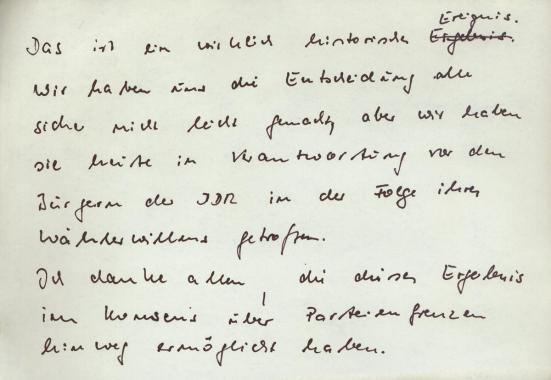 Ereignis.
Das ist ein wirklich historisches Ergebnis.
Wir haben uns die Entscheidung alle
sicher nicht leicht gemacht, aber wir haben
sie heute in Verantwortung vor den
Bürgern der DDR in der Folge ihres
Wählerwillens getroffen.
Ich danke allen, die dieses Ergebnis
im Konsens über Parteiengrenzen
hinweg ermöglicht haben.